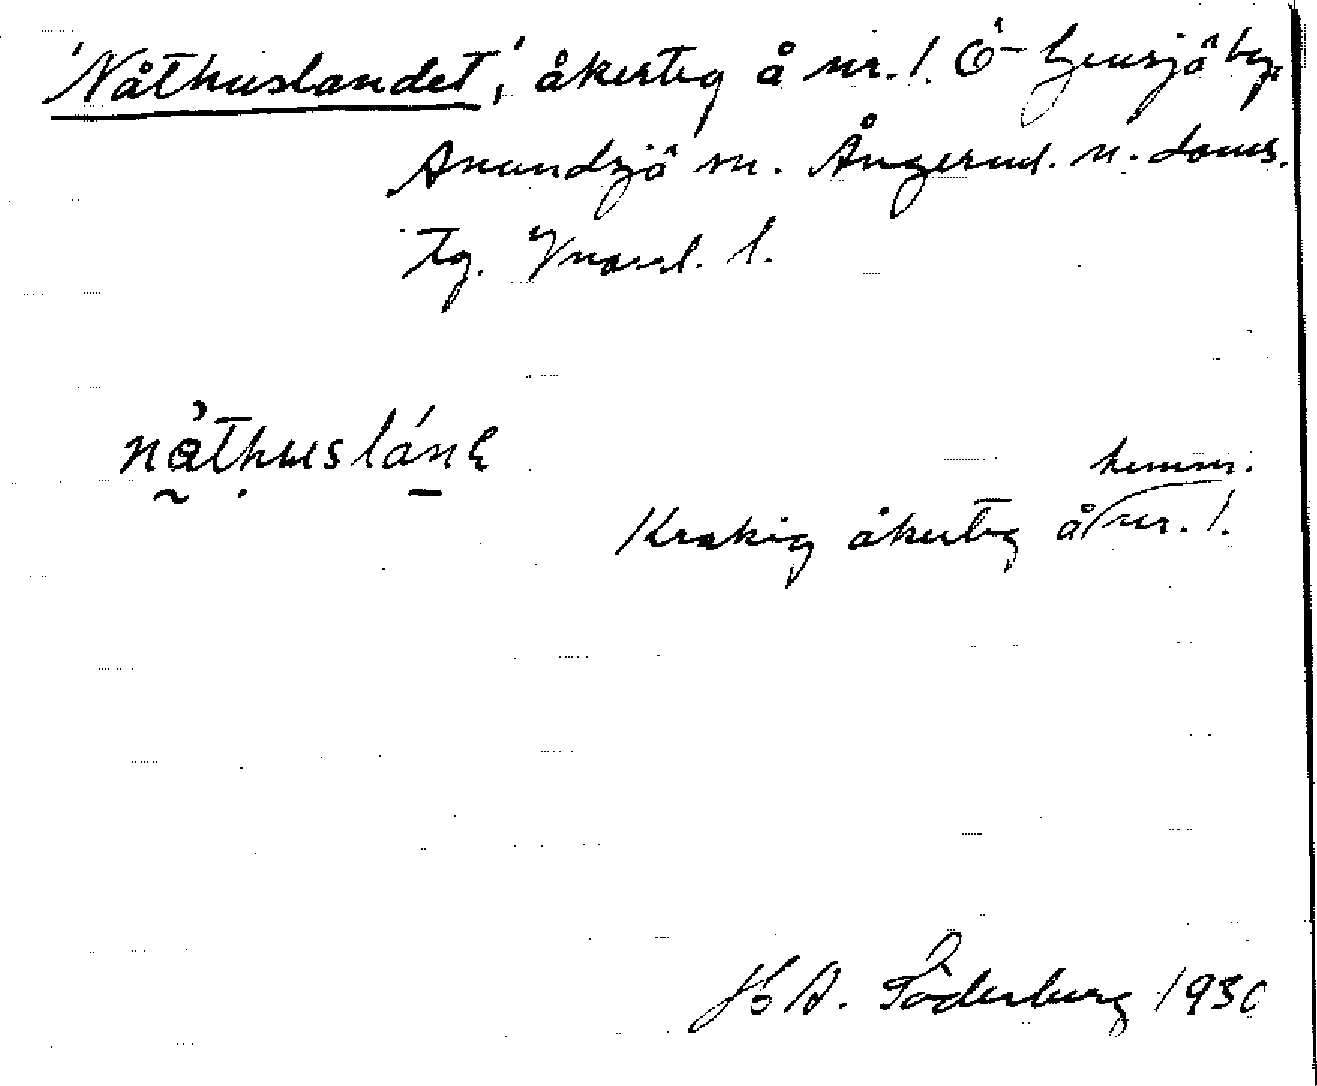 'Nåthuslandet,' åkerteg å nr. 1. Ö Gensjö by,
Anundsjö sn. Ångerml. n. doms.
tg. Vnorrl. l.
nåthuslánɛ
hemm.
Krokig åkerteg å nr. 1.
A. Söderberg 1930